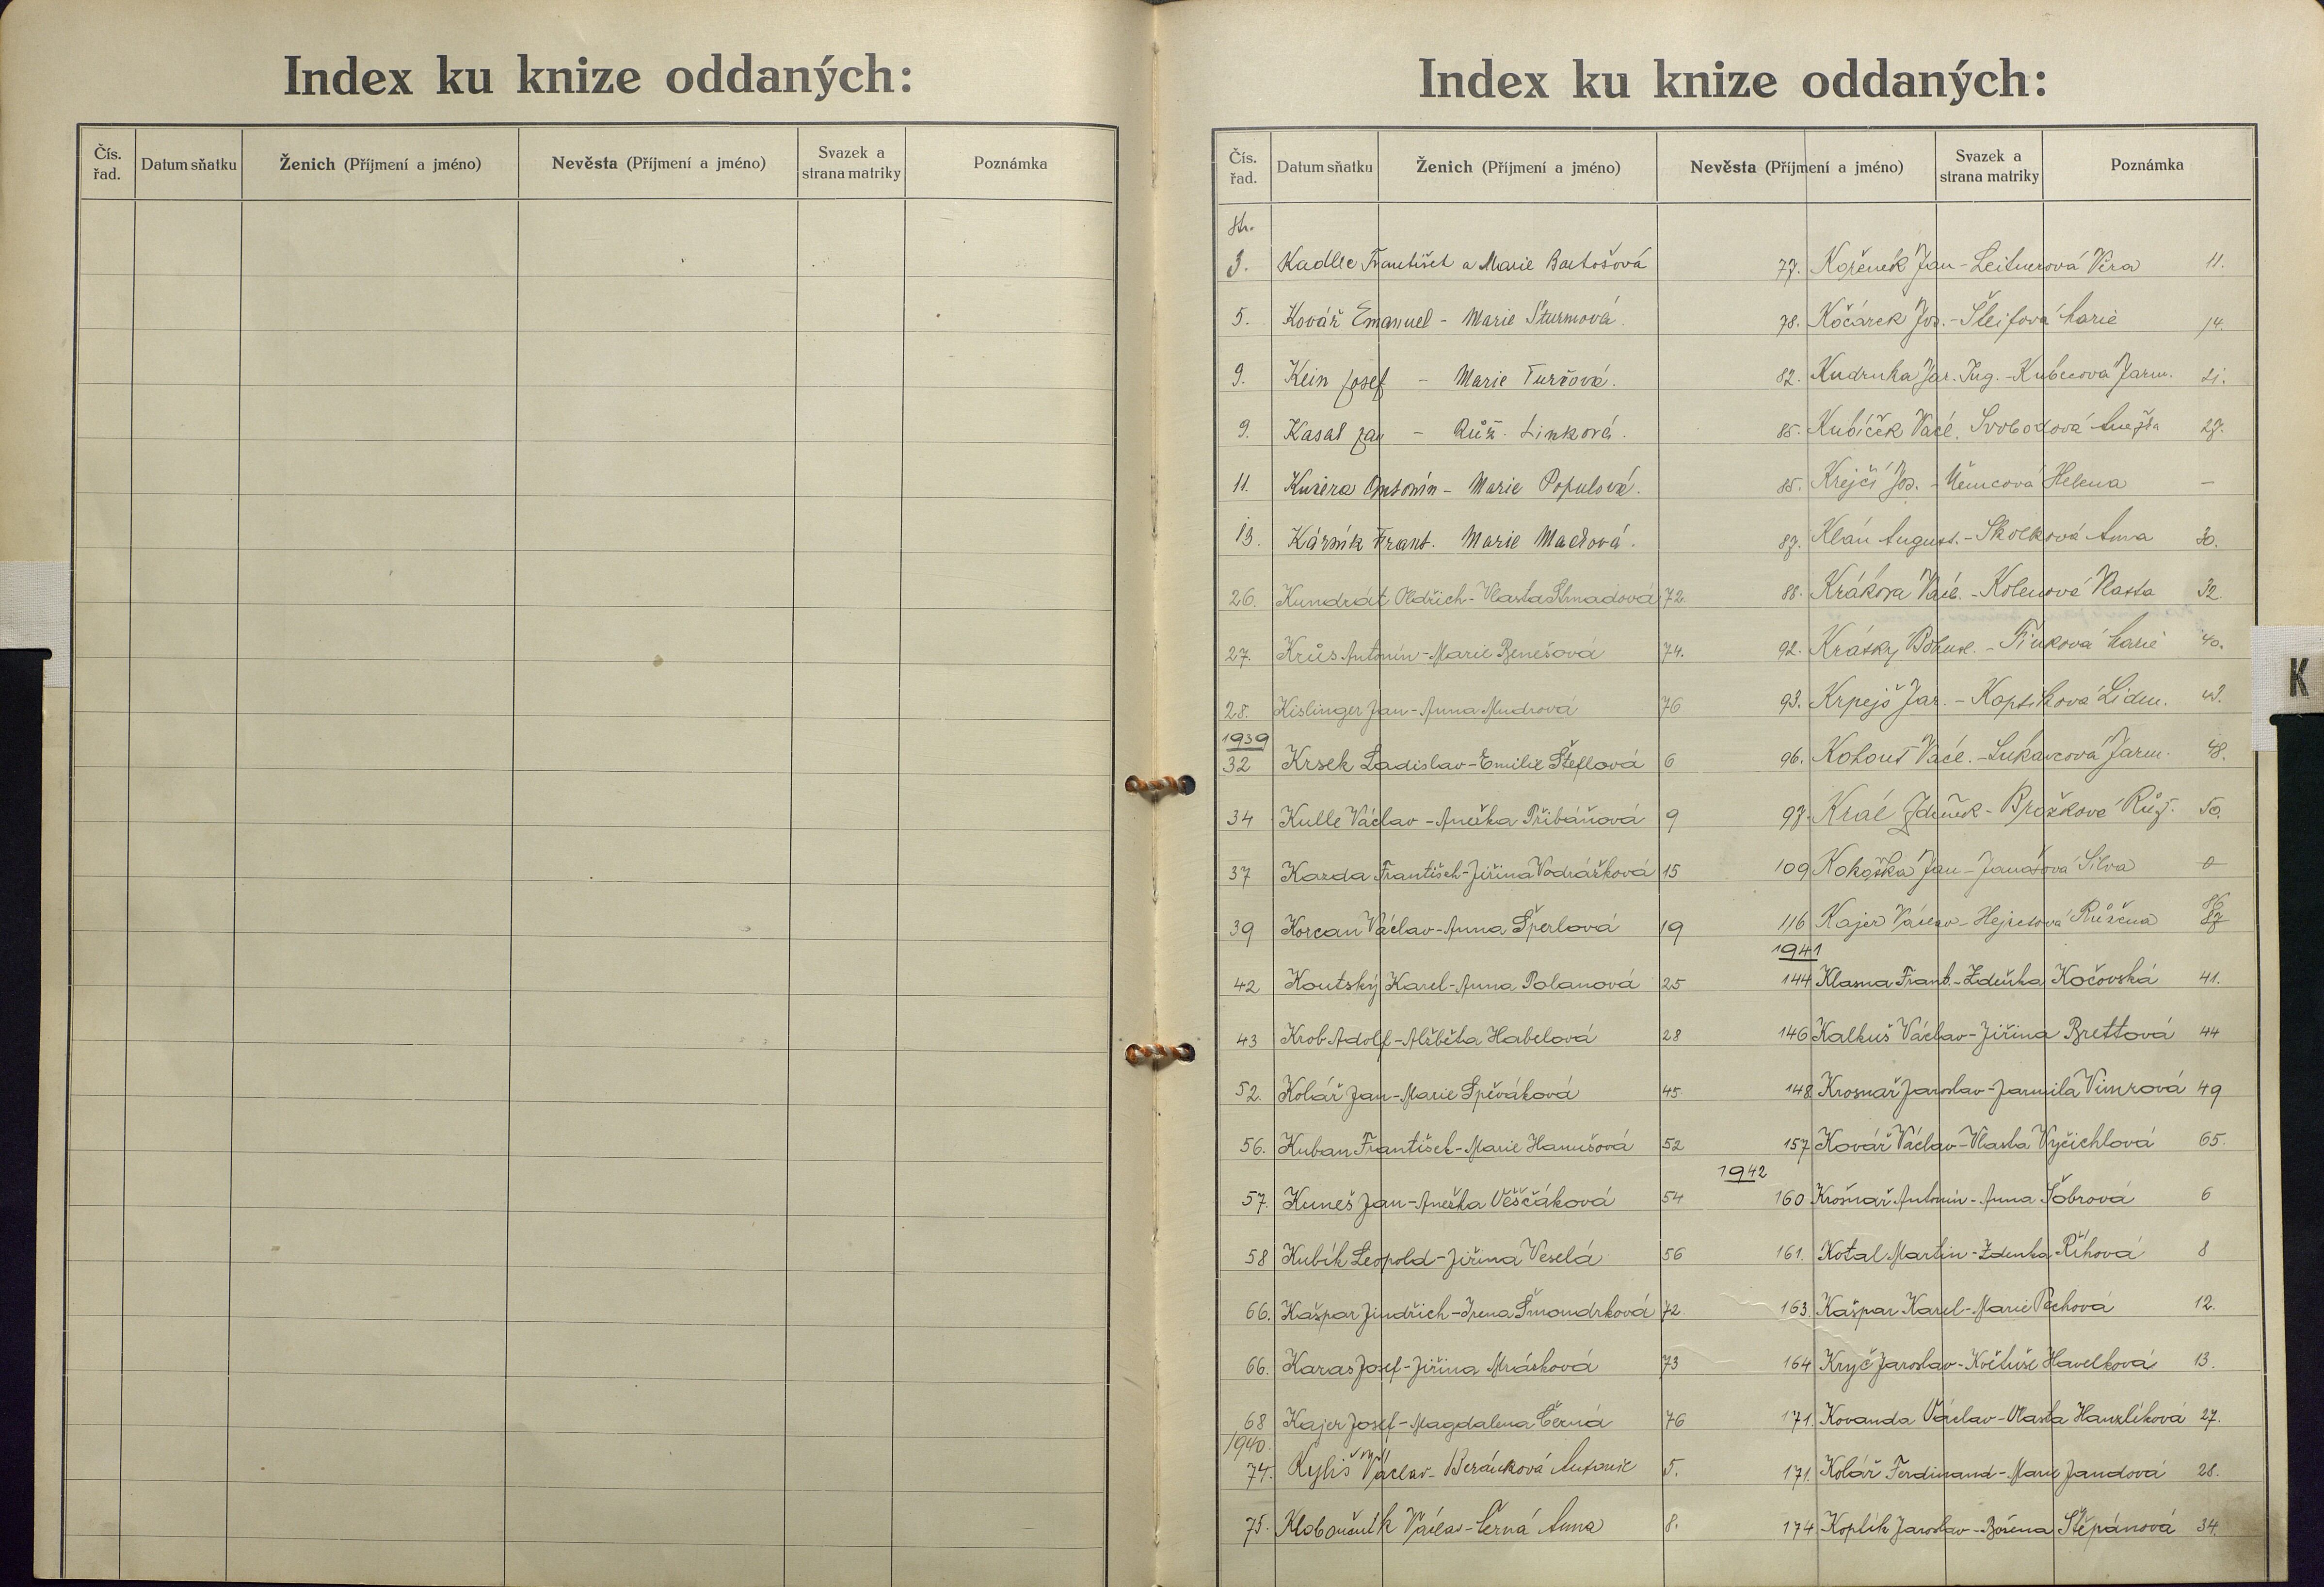 Index ku knize oddaných:
Čís. řad. Datum sňatku Ženich (Příjmení a jméno) Nevěsta (Příjmení a jméno) Svazek a strana matriky Poznámka
Index ku knize oddaných:
Čís. řad. Datum sňatku Ženich (Příjmení a jméno) Nevěsta (Příjmení a jméno) Svazek a strana matriky Poznámka
str.
3. Kadlec František a Marie Bartošová
5. Kovář Emanuel - Marie Šturmová.
9. Kein Josef - Marie Turčová.
9. Kasal Jan - Růž. Linková.
11. Kučera Antonín - Marie Populová.
13. Kárník Frant. Marie Mačlová.
26. Kundrát Oldřich - Vlasta Strnadová 72.
27. Krůs Antonín - Marie Benešová 74.
28. Kislinger Jan - Anna Mudrová 76
1939
32 Krsek Ladislav - Emilie Šteflová 6
34 Kulle Václav - Anežka Přibáňová 9
37 Kazda František - Jiřina Vodrážková 15
39 Korcan Václav - Anna Šperlová 19
42 Koutský Karel - Anna Polanová 25
43 Krob Adolf - Alžběta Habelová 28
52. Kolář Jan - Marie Spěváková 45
56. Kuban František - Marie Hanušová 52
57. Kuneš Jan - Anežka Věščáková 54
58 Kubík Leopold - Jiřina Veselá 56
66. Kašpar Jindřich - Irena Šmondrková 72
66. Karas Josef - Jiřina Mrásková 73
68 Kajer Josef - Magdalena Černá 76
1940.
74. Kyliš Václav - Beránková Antonie 5.
75. Kloboučník Václav - Černá Anna 8.
77. Kořenek Jan - Leitnerová Věra 11.
78. Kočárek Jos. - Šleifová Marie 14.
82. Kudrnka Jar. Ing. - Kubecová Jarm. 21.
85. Kubíček Václ. Svobodová Anežka 27.
85. Krejčí Jos. - Němcová Helena -
87. Klán August. - Skolková Anna 30.
88. Krákora Václ. - Kolenová Vlasta 32.
92. Krátký Bohusl. - Finková Marie 40.
93. Krpejš Jar. - Koptiková Lidm.
96. Kohout Václ. - Lukavcová Jarm. 48.
97. Král Zdeněk - Brožková Růž. 50.
109 Kokoška Jan - Janatová Silva 0
116 Kajer Václav - Hejretová Růžena 86 87
1941
144 Klasna Frant. - Zdeňka Kočovská 41.
146 Kalkuš Václav - Jiřina Brettová 44
148 Krosnař Jaroslav - Jarmila Vimrová 49
157 Kovář Václav - Vlasta Vyčichlová 65.
1942
160 Krosnař Antonín - Anna Šobrová 6
161. Kotal Martin - Zdenka Říhová 8
163. Kašpar Karel - Marie Pechová 12.
164 Kryč Jaroslav - Květuše Havelková 13.
171. Kovanda Václav - Vlasta Hanzlíková 27.
171. Kolář Ferdinand - Marie Jandová 28.
174 Koplík Jaroslav - Božena Štěpánová 34.
K